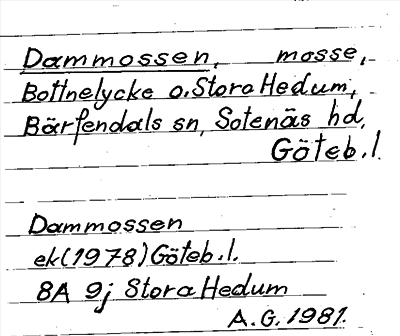 Dammossen, mosse,
Bottnelycke o. Stora Hedum,
Bärfendals sn, Sotenäs hd,
Göteb. l.
Dammossen
ek (1978) Göteb. l.
8A 9j Stora Hedum
A. G. 1981.